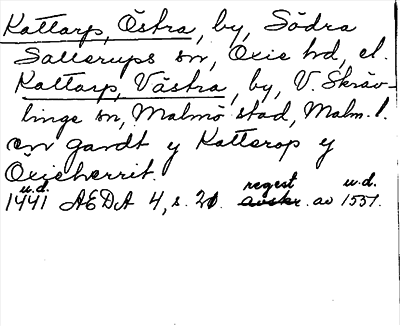 Kattarp, Östra, by, Södra
Sallerups sn, Oxie hd, el.
Kattarp, Västra, by, V. Skräv-
linge sn, Malmö stad, Malm. l.
en gardt y Katterop y
Oxieherrit.
u.d. regest u.d.
1441 AEDA 4, s. 21. avskr. av 1551.